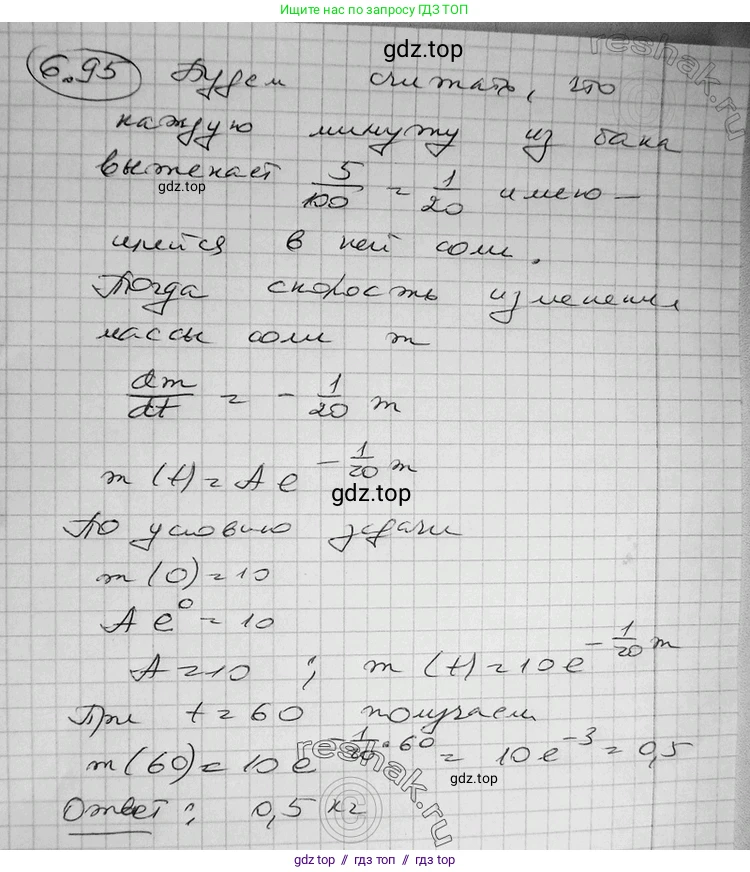 Ищите нас по запросу ГДЗ ТОП
gdz.top
reshak.ru
6.95 Будем считать, что
каждую минуту из бака
вытекает 5/100 = 1/20 имею-
gdz.top
щейся в ней соли.
Тогда скорость изменения
массы соли m
dm/dt = - 1/20 m
m(t) = A e^(-1/20 m)
gdz.top
По условию задачи
m(0) = 10
A e^0 = 10
A = 10 ; m(t) = 10 e^(-1/20 m)
При t = 60 получаем
m(60) = 10 e^(-1/20 · 60) = 10 e^(-3) = 0,5
reshak.ru
gdz.top
Ответ: 0,5 кг
gdz.top // gdz.top // gdz.top